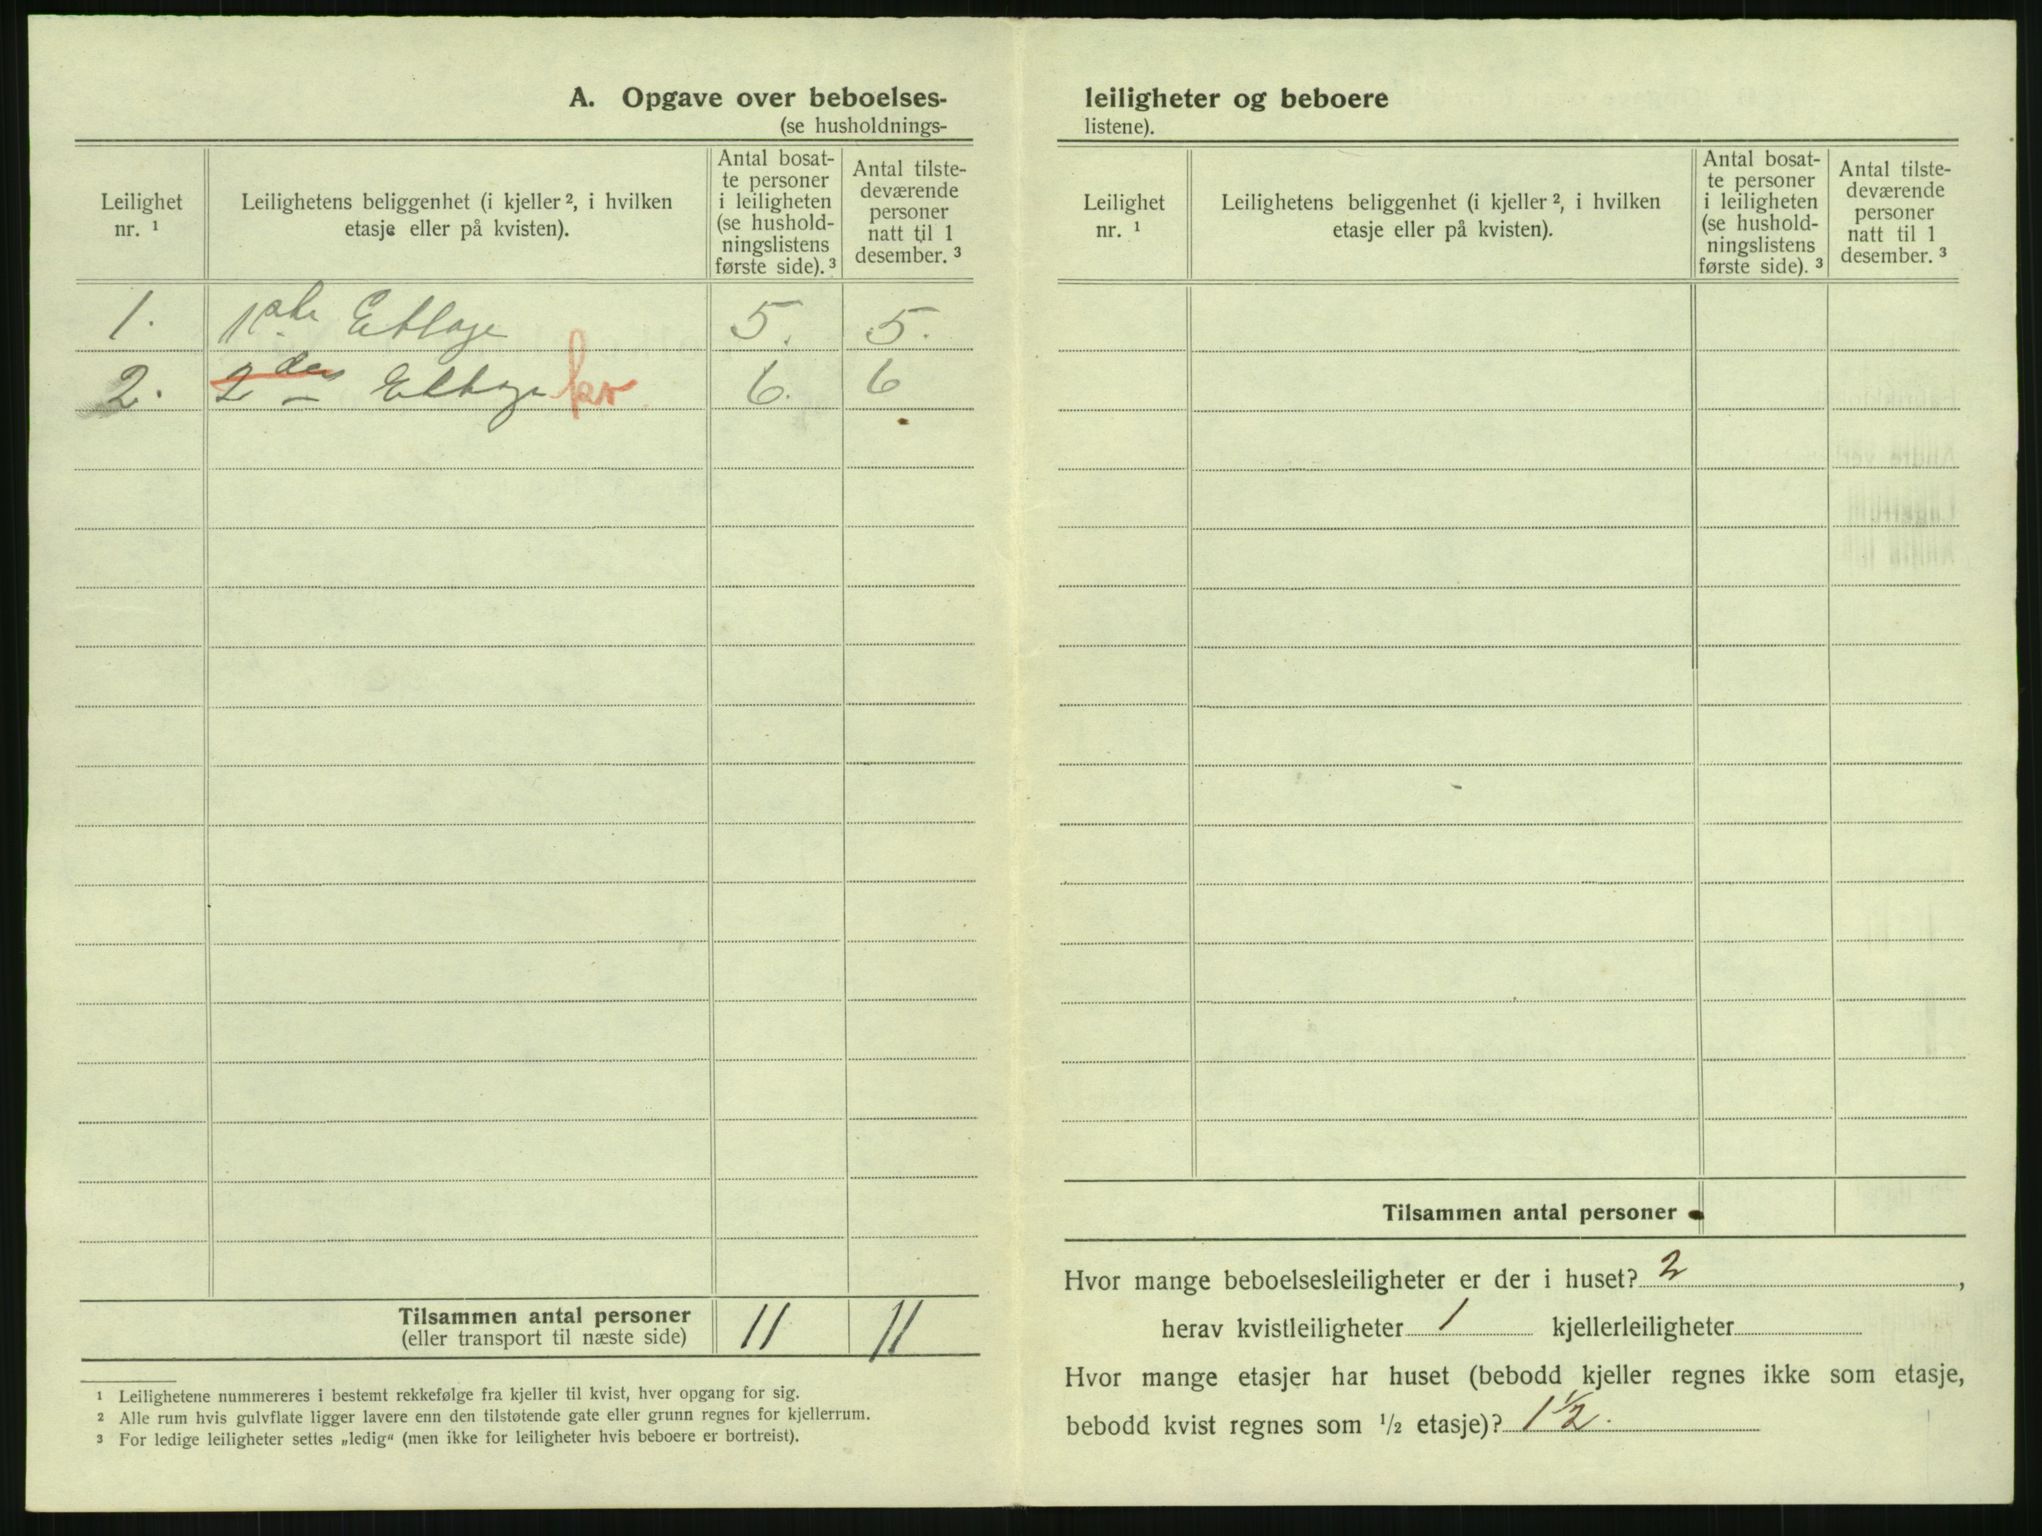 A. Opgave over beboelses-
(se husholdnings-
Leilighet nr. ¹
Leilighetens beliggenhet (i kjeller ², i hvilken etasje eller på kvisten).
Antal bosat-
te personer
i leiligheten
(se hushold-
ningslistens
første side). ³
Antal tilste-
deværende
personer
natt til 1
desember. ³
1. 1ste Ettage 5. 5.
2. 2den Ettage kv 6. 6
Tilsammen antal personer 11 11
(eller transport til næste side)
¹ Leilighetene nummereres i bestemt rekkefølge fra kjeller til kvist, hver opgang for sig.
² Alle rum hvis gulvflate ligger lavere enn den tilstøtende gate eller grunn regnes for kjellerrum.
³ For ledige leiligheter settes „ledig“ (men ikke for leiligheter hvis beboere er bortreist).
leiligheter og beboere
listene).
Leilighet nr. ¹
Leilighetens beliggenhet (i kjeller ², i hvilken etasje eller på kvisten).
Antal bosat-
te personer
i leiligheten
(se hushold-
ningslistens
første side). ³
Antal tilste-
deværende
personer
natt til 1
desember. ³
Tilsammen antal personer
Hvor mange beboelsesleiligheter er der i huset? 2,
herav kvistleiligheter 1 kjellerleiligheter
Hvor mange etasjer har huset (bebodd kjeller regnes ikke som etasje,
bebodd kvist regnes som ½ etasje)? 1½.